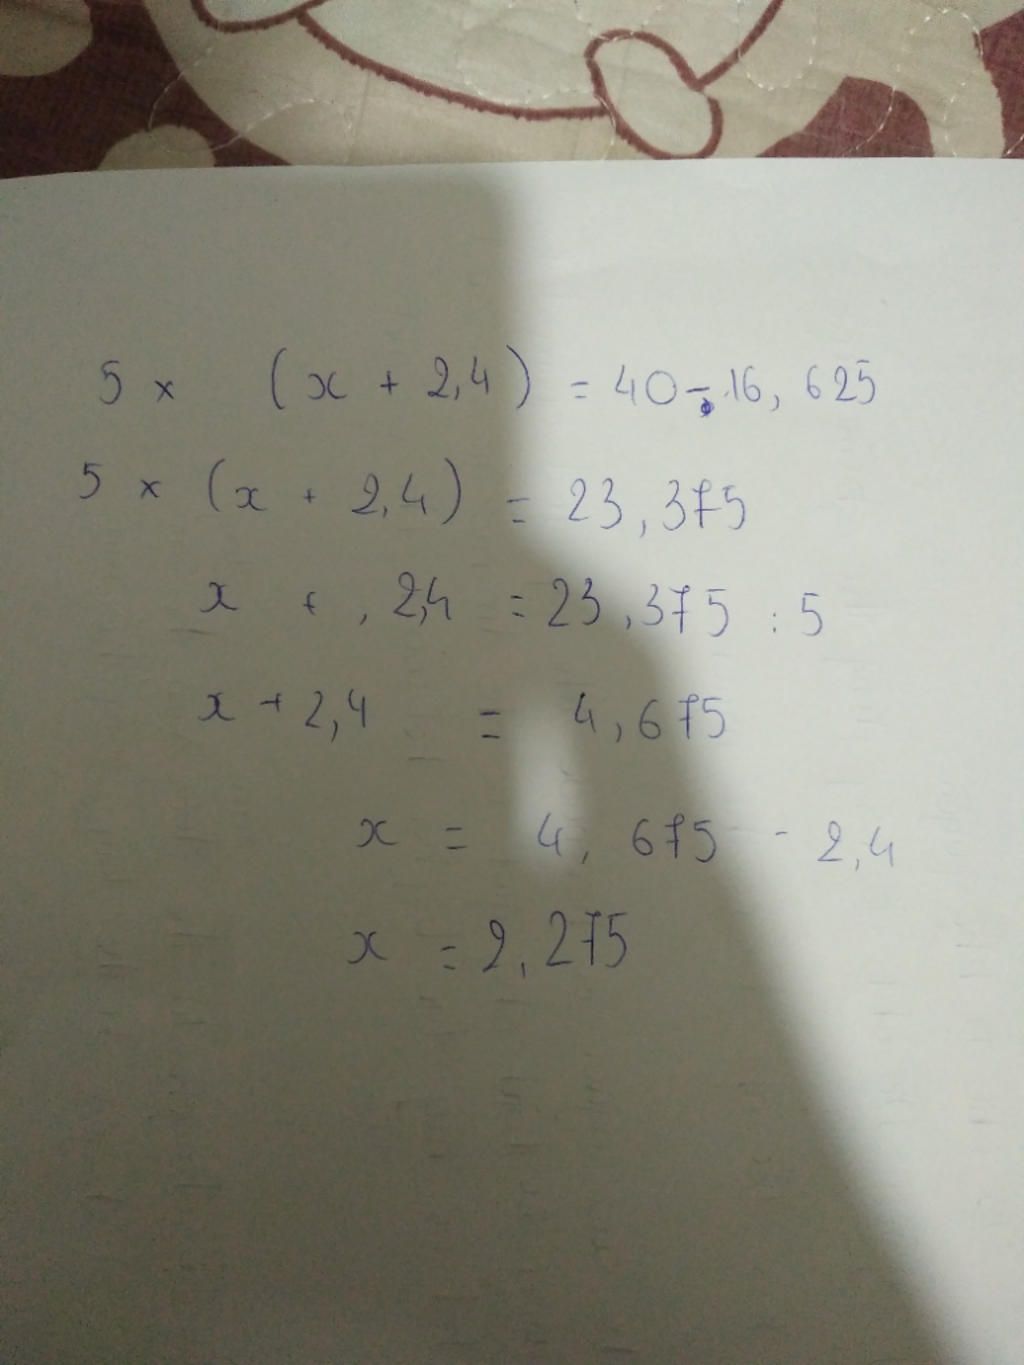 5 × (x + 2,4) = 40 - 16, 625
5 × (x + 2,4) = 23,375
x + , 2,4 = 23,375 : 5
x + 2,4 = 4,675
x = 4, 675 - 2,4
x = 2, 275